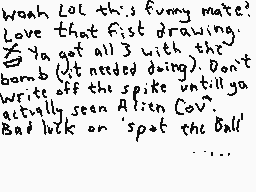 Woah LOL this funny mate!
Love that fist drawing.
Ya got all 3 with the
bomb (it needed doing). Don't
write off the spike untill ya
actually seen Alien Cov.
Bad luck on 'spot the Ball'
.....